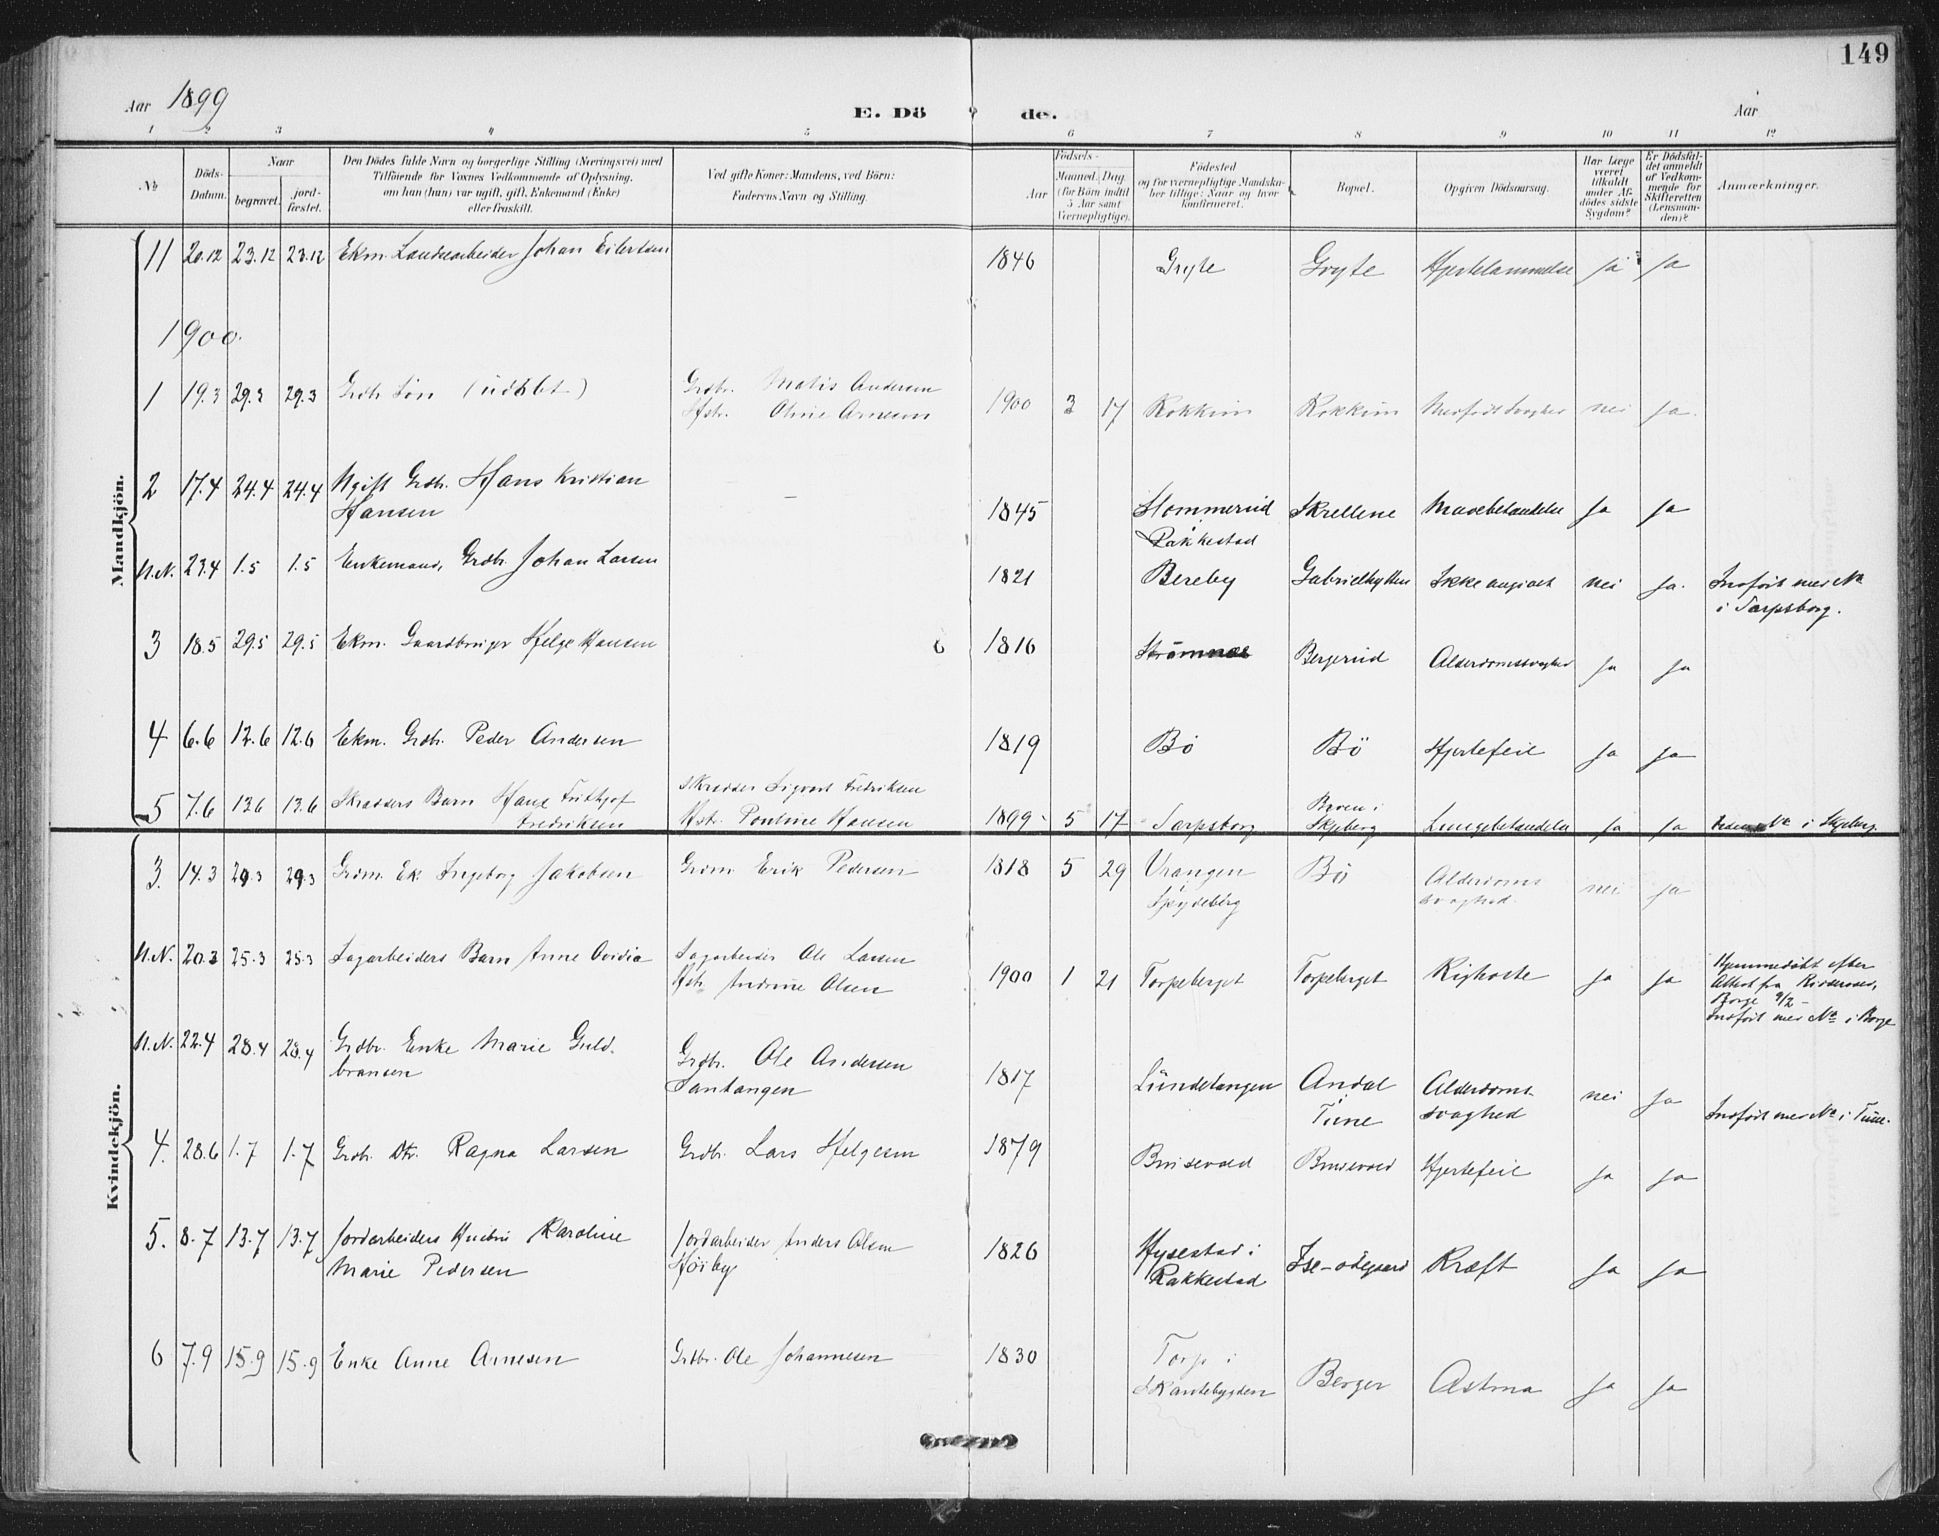 149
Aar 1899
E. Dö de.
Aar
1 2 3 4 5 6 7 8 9 10 11 12
№
Döds-Datum.
Naar
begravet.
jord-fæstet.
Den Dödes fulde Navn og borgerlige Stilling (Næringsvei) med
Tilföiende for Voxnes Vedkommende af Oplysning,
om han (hun) var ugift, gift, Enkemand (Enke)
eller fraskilt.
Ved gifte Koner: Mandens, ved Börn:
Faderens Navn og Stilling.
Födsels-
Aar
Maaned. Dag
(for Börn indtil
5 Aar samt
Værnepligtige).
Födested
og for værnepligtige Mandska-
ber tillige: Naar og hvor
konfirmeret.
Bopæl.
Opgiven Dödsaarsag.
Har Læge
været
tilkaldt
under Af-
dödes sidste
Sygdom?
Er Dödsfal-
det anmeldt
af Vedkom-
mende for
Skifteretten
(Lensman-
den)?
Anmærkninger.
Mandkjön.
11 20.12 23.12 23.12 Ekm. Landarbeider Johan Eilertsen 1846 Gryte Gryte Hjertelammelse ja ja
1900.
1 19.3 29.3 29.3 Grdb. Søn (udøbt) Grdbr. Mathis Andersen 1900 3 17 Kokkim Kokkim Medfødt Svaghed nei ja.
Hstr. Oline Arnesen
2 17.4 24.4 24.4 Ugift Grdb. Hans Kristian — 1845 Slommerud Skrellene Mavebetændelse ja ja
Hansen Rakkestad
U.N. 23.4 1.5 1.5 Enkemand, Grdb. Johan Larsen 1821 Bereby Gabrielhytten Ikke angivet nei ja. Indført med №
i Sarpsborg.
3 18.5 29.5 29.5 Ekm. Gaardbruger Helge Hansen 6 1816 Strömnæs Bergerud Alderdomssvaghed ja ja
4 6.6 12.6 12.6 Ekm. Grdbr. Peder Andersen 1819 Bö Bö Hjertefeil ja ja
5 7.6 13.6 13.6 Skrædders Barn Hans Frithjof Skrædder Sigvart Fredriksen
Fredriksen Hstr. Pouline Hansen 1899 5 17 Sarpsborg Skjeberg Lungebetændelse ja ja № i Skjeberg
Kvindekjön.
3. 14.3 29.3 29.3 Grdm. Ek. Ingeborg Jakobsen Grdm Erik Pedersen 1818 5 29 Vrangen Bö Alderdoms nei ja
Spydeberg svaghed.
U.N. 20.3 25.3 25.3 Sagarbeiders Barn Anne Ovidia Sagarbeider Ole Larsen 1900 1 21 Torpeberget Torpeberget Kighoste ja ja Hjemmedøbt efter
Hstr. Andrine Olsen Attest fra
Borge 9/2 -
Indført med № i Borge
U.N. 22.4 28.4 28.4 Grdbr. Enke Marie Guld- Grdbr. Ole Andersen 1817 Lundetangen Andal Alderdoms- nei ja
bransen Santangen Tune svaghed Indført med № i Tune.
4. 28.6 1.7 1.7 Grdb. Dtr. Ragna Larsen Grdbr. Lars Helgesen 1879 Buisevold Buisevold Hjertefeil ja ja
5. 8.7 13.7 13.7 Jordarbeiders Hustru Karoline Jordarbeider Anders Olsen 1826 Hysestad i Ise-ødegaard Kræft ja ja
Marie Pedersen Høiby Rakkestad
6 7.9 15.9 15.9 Enke Anne Arnesen Grdbr. Ole Johannesen 1830 Torp i Berger Astma ja ja
Skantebygden